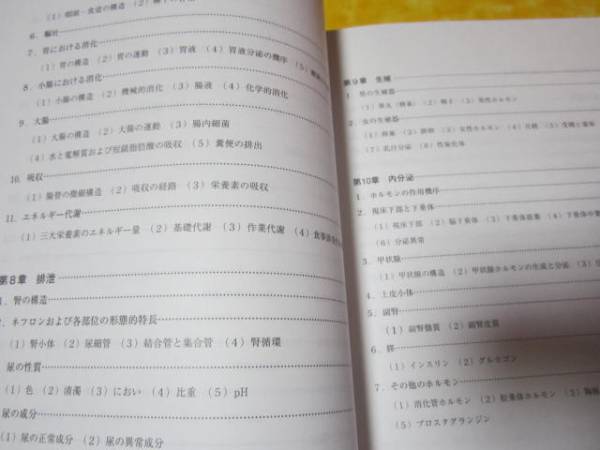 (1) 咽頭－食道の構造 (2)
6. 嘔吐
7. 胃における消化
(1) 胃の構造 (2) 胃の運動 (3) 胃液 (4) 胃液分泌の機序 (5)
8. 小腸における消化
(1) 小腸の構造 (2) 機械的消化 (3) 腸液 (4) 化学的消化
9. 大腸
(1) 大腸の構造 (2) 大腸の運動 (3) 腸内細菌
(4) 水と電解質および短鎖脂肪酸の吸収 (5) 糞便の排出
10. 吸収
(1) 腸管の微細構造 (2) 吸収の経路 (3) 栄養素の吸収
11. エネルギー代謝
(1) 三大栄養素のエネルギー量 (2) 基礎代謝 (3) 作業代謝 (4)
第8章 排泄
1. 腎の構造
2. ネフロンおよび各部位の形態的特長
(1) 腎小体 (2) 尿細管 (3) 結合管と集合管 (4) 腎循環
尿の性質
(1) 色 (2) 清濁 (3) におい (4) 比重 (5) pH
尿の成分
(1) 尿の正常成分 (2) 尿の異常成分
第9章 生殖
1. 男の生殖器
(1) 睾丸 (精巣) (2) 精子 (3) 男性ホルモン
2. 女の生殖器
(1) 卵巣 (2) 排卵 (3) 女性ホルモン (4) 月経 (5) 受精と着床
(7) 乳汁分泌 (8) 性染色体
第10章 内分泌
1. ホルモンの作用機序
2. 視床下部と下垂体
(1) 視床下部 (2) 脳下垂体 (3) 下垂体前葉 (4) 下垂体中葉
(6) 分泌異常
3. 甲状腺
(1) 甲状腺の構造 (2) 甲状腺ホルモンの生成と分泌 (3)
4. 上皮小体
5. 副腎
(1) 副腎髄質 (2) 副腎皮質
6. 膵
(1) インスリン (2) グルカゴン
7. その他のホルモン
(1) 消化管ホルモン (2) 松果体ホルモン (3) 胸腺
(5) プロスタグランジン